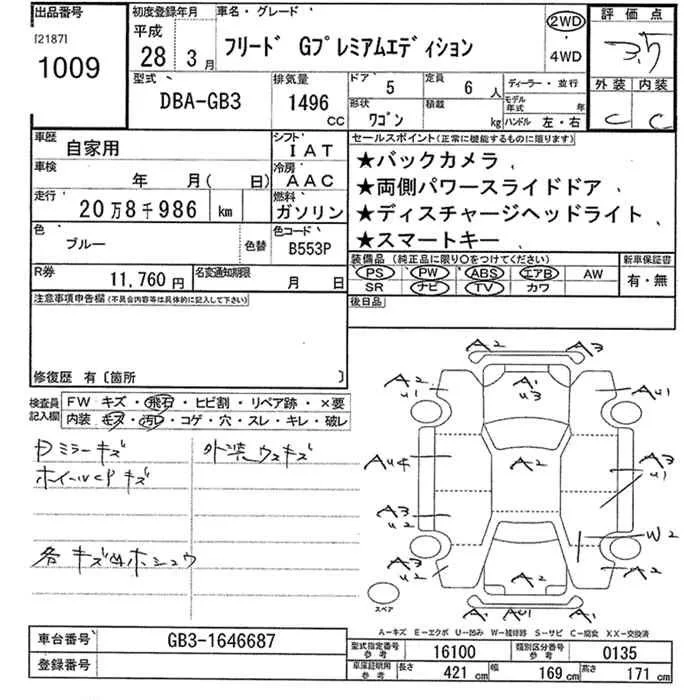 出品番号
[2187]
1009
初度登録年月
平成
28 3月
車名・グレード
フリード Gプレミアムエディション
2WD
・
4WD
評価点
3.5
外装 内装
C C
型式
DBA-GB3
排気量
1496 CC
ドア 5
定員 6 人
形状 ワゴン
積載 kg
ディーラー・並行
モデル年式 年
ハンドル 左・右
車歴 自家用
シフト IAT
車検 年 月( 日)
冷房 AAC
走行 20万8千986 km
燃料 ガソリン
色 ブルー 色替
色コード B553P
R券 11,760円
名変通知期限 月 日
セールスポイント(正常に機能するものに限ります)
★バックカメラ
★両側パワースライドドア
★ディスチャージヘッドライト
★スマートキー
装備品 (純正品に限り○をつけてください)
PS PW ABS エアB AW
SR ナビ TV カワ
新車保証書
有・無
後日品
注意事項申告欄(不具合内容等は具体的に記入して下さい)
修復歴 有〔箇所 〕
検査員記入欄
FW キズ・飛石・ヒビ割・リペア跡・×要
内装・キズ・汚レ・コゲ・穴・スレ・キレ・破レ
Dミラーキズ
外装ウスキズ
ホイールCPキズ
各キズ凹ホシュウ
A2 A3
A2 u1
A1 u3
Au1
Au4
A2
A3 u1
A3 u2
W2
A3 u2
A2
A2 Au1 A2
スペア
A-キズ E-エクボ U-凹み W-補修跡 S-サビ C-腐食 XX-交換済
車台番号 GB3-1646687
登録番号
型式指定番号 参考 16100
類別区分番号 参考 0135
車庫証明用 参考
長さ 421 cm
幅 169 cm
高さ 171 cm